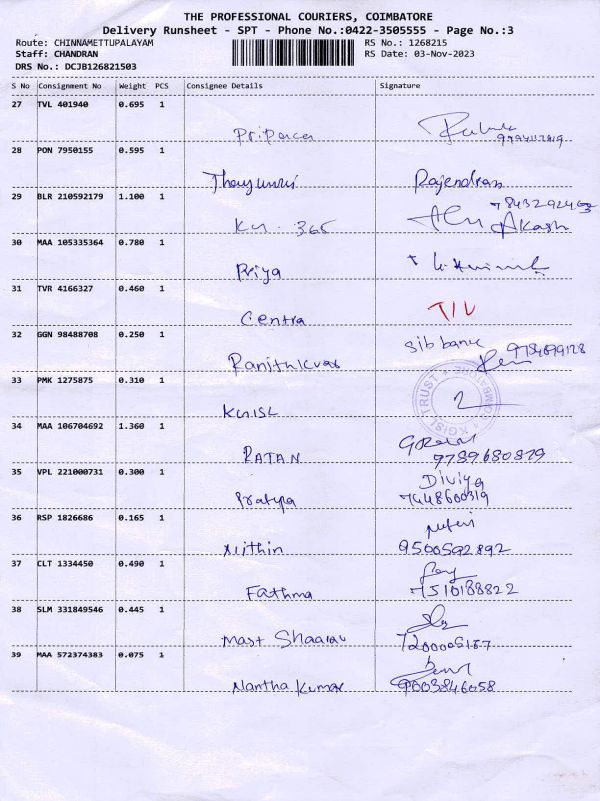 THE PROFESSIONAL COURIERS, COIMBATORE
Delivery Runsheet - SPT - Phone No.:0422-3505555 - Page No.:3
Route: CHINNAMETTUPALAYAM RS No.: 1268215
Staff: CHANDRAN RS Date: 03-Nov-2023
DRS No.: DCJB126821503
S No Consignment No Weight PCS Consignee Details Signature
27 TVL 401940 0.695 1
28 PON 7950155 0.595 1
Rajendran
29 BLR 210592179 1.100 1
KG. 365 Akash
30 MAA 105335364 0.780 1
Priya
31 TVR 4166327 0.460 1
Centra
32 GGN 98488708 0.250 1
sib bank
33 PMK 1275875 0.310 1
KGISL
KGISL TRUST
34 MAA 106704692 1.360 1
RATAN 7789680879
35 VPL 221000731 0.300 1
Diviya
36 RSP 1826686 0.165 1
Nithin 9500592892
37 CLT 1334450 0.490 1
Fathma 7510188822
38 SLM 331849546 0.445 1
39 MAA 572374383 0.075 1
Nantha Kumar 9003846058